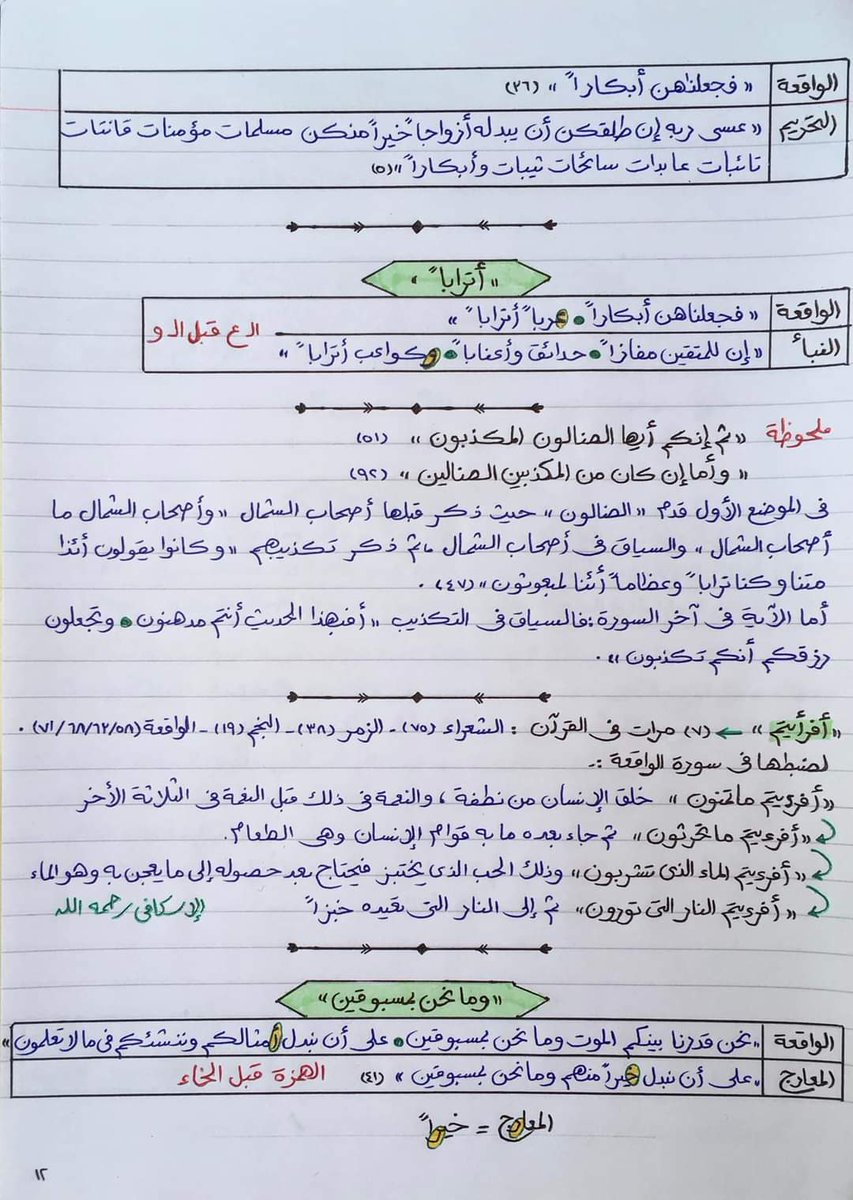 الواقعة « فجعلناهن أبكاراً » (٣٦)
التحريم « عسى ربه إن طلقكن أن يبدله أزواجاً خيراً منكن مسلمات مؤمنات قانتات
تائبات عابدات سائحات ثيبات وأبكاراً » (٥)
« أتراباً »
الواقعة « فجعلناهن أبكاراً • عرباً أتراباً »
الـ ع قبل الـ و
النبأ « إن للمتقين مفازاً • حدائق وأعناباً • وكواعب أتراباً »
ملحوظة « ثم إنكم أيها الضالون المكذبون » (٥١)
« وأما إن كان من المكذبين الضالين » (٩٢)
فى الموضع الأول قدم « الضالون » حيث ذكر قبلها أصحاب الشمال « وأصحاب الشمال ما
أصحاب الشمال » والسياق فى أصحاب الشمال ، ثم ذكر تكذيبهم « وكانوا يقولون أئذا
متنا وكنا تراباً وعظاماً أئنا لمبعوثون » (٤٧) .
أما الآية فى آخر السورة : فالسياق فى التكذيب « أفبهذا الحديث أنتم مدهنون • وتجعلون
رزقكم أنكم تكذبون » .
« أفرأيتم » ← (٧) مرات فى القرآن : الشعراء (٧٥) - الزمر (٣٨) - النجم (١٩) - الواقعة (٥٨/٦٢/٦٨/٧١) .
لضبطها فى سورة الواقعة :-
« أفرءيتم ما تمنون » خلق الإنسان من نطفة ، والنعمة فى ذلك قبل النعمة فى الثلاثة الأخر
« أفرءيتم ما تحرثون » ثم جاء بعده ما به قوام الإنسان وهى الطعام.
« أفرءيتم الماء الذى تشربون » وذلك الحب الذى يختبز فيحتاج بعد حصوله إلى ما يعجن به وهو الماء
« أفرءيتم النار التى تورون » ثم إلى النار التى تعيده خبزاً الإسكافى رحمه الله
« وما نحن بمسبوقين »
الواقعة « نحن قدرنا بينكم الموت وما نحن بمسبوقين • على أن نبدل أمثالكم وننشئكم فى ما لا تعلمون »
المعارج « على أن نبدل خيراً منهم وما نحن بمسبوقين » (٤١) الهمزة قبل الخاء
المعارج = خيراً
١٢